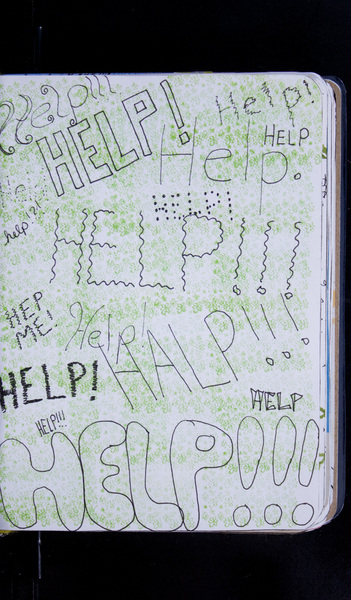 Help!!!
HELP!
Help!
HELP
Help.
Help
HELP!
help?!
HELP!!!
HEP
ME!
Help!
HALP!!!
HELP!
HELP
HELP!!!
HELP!!!